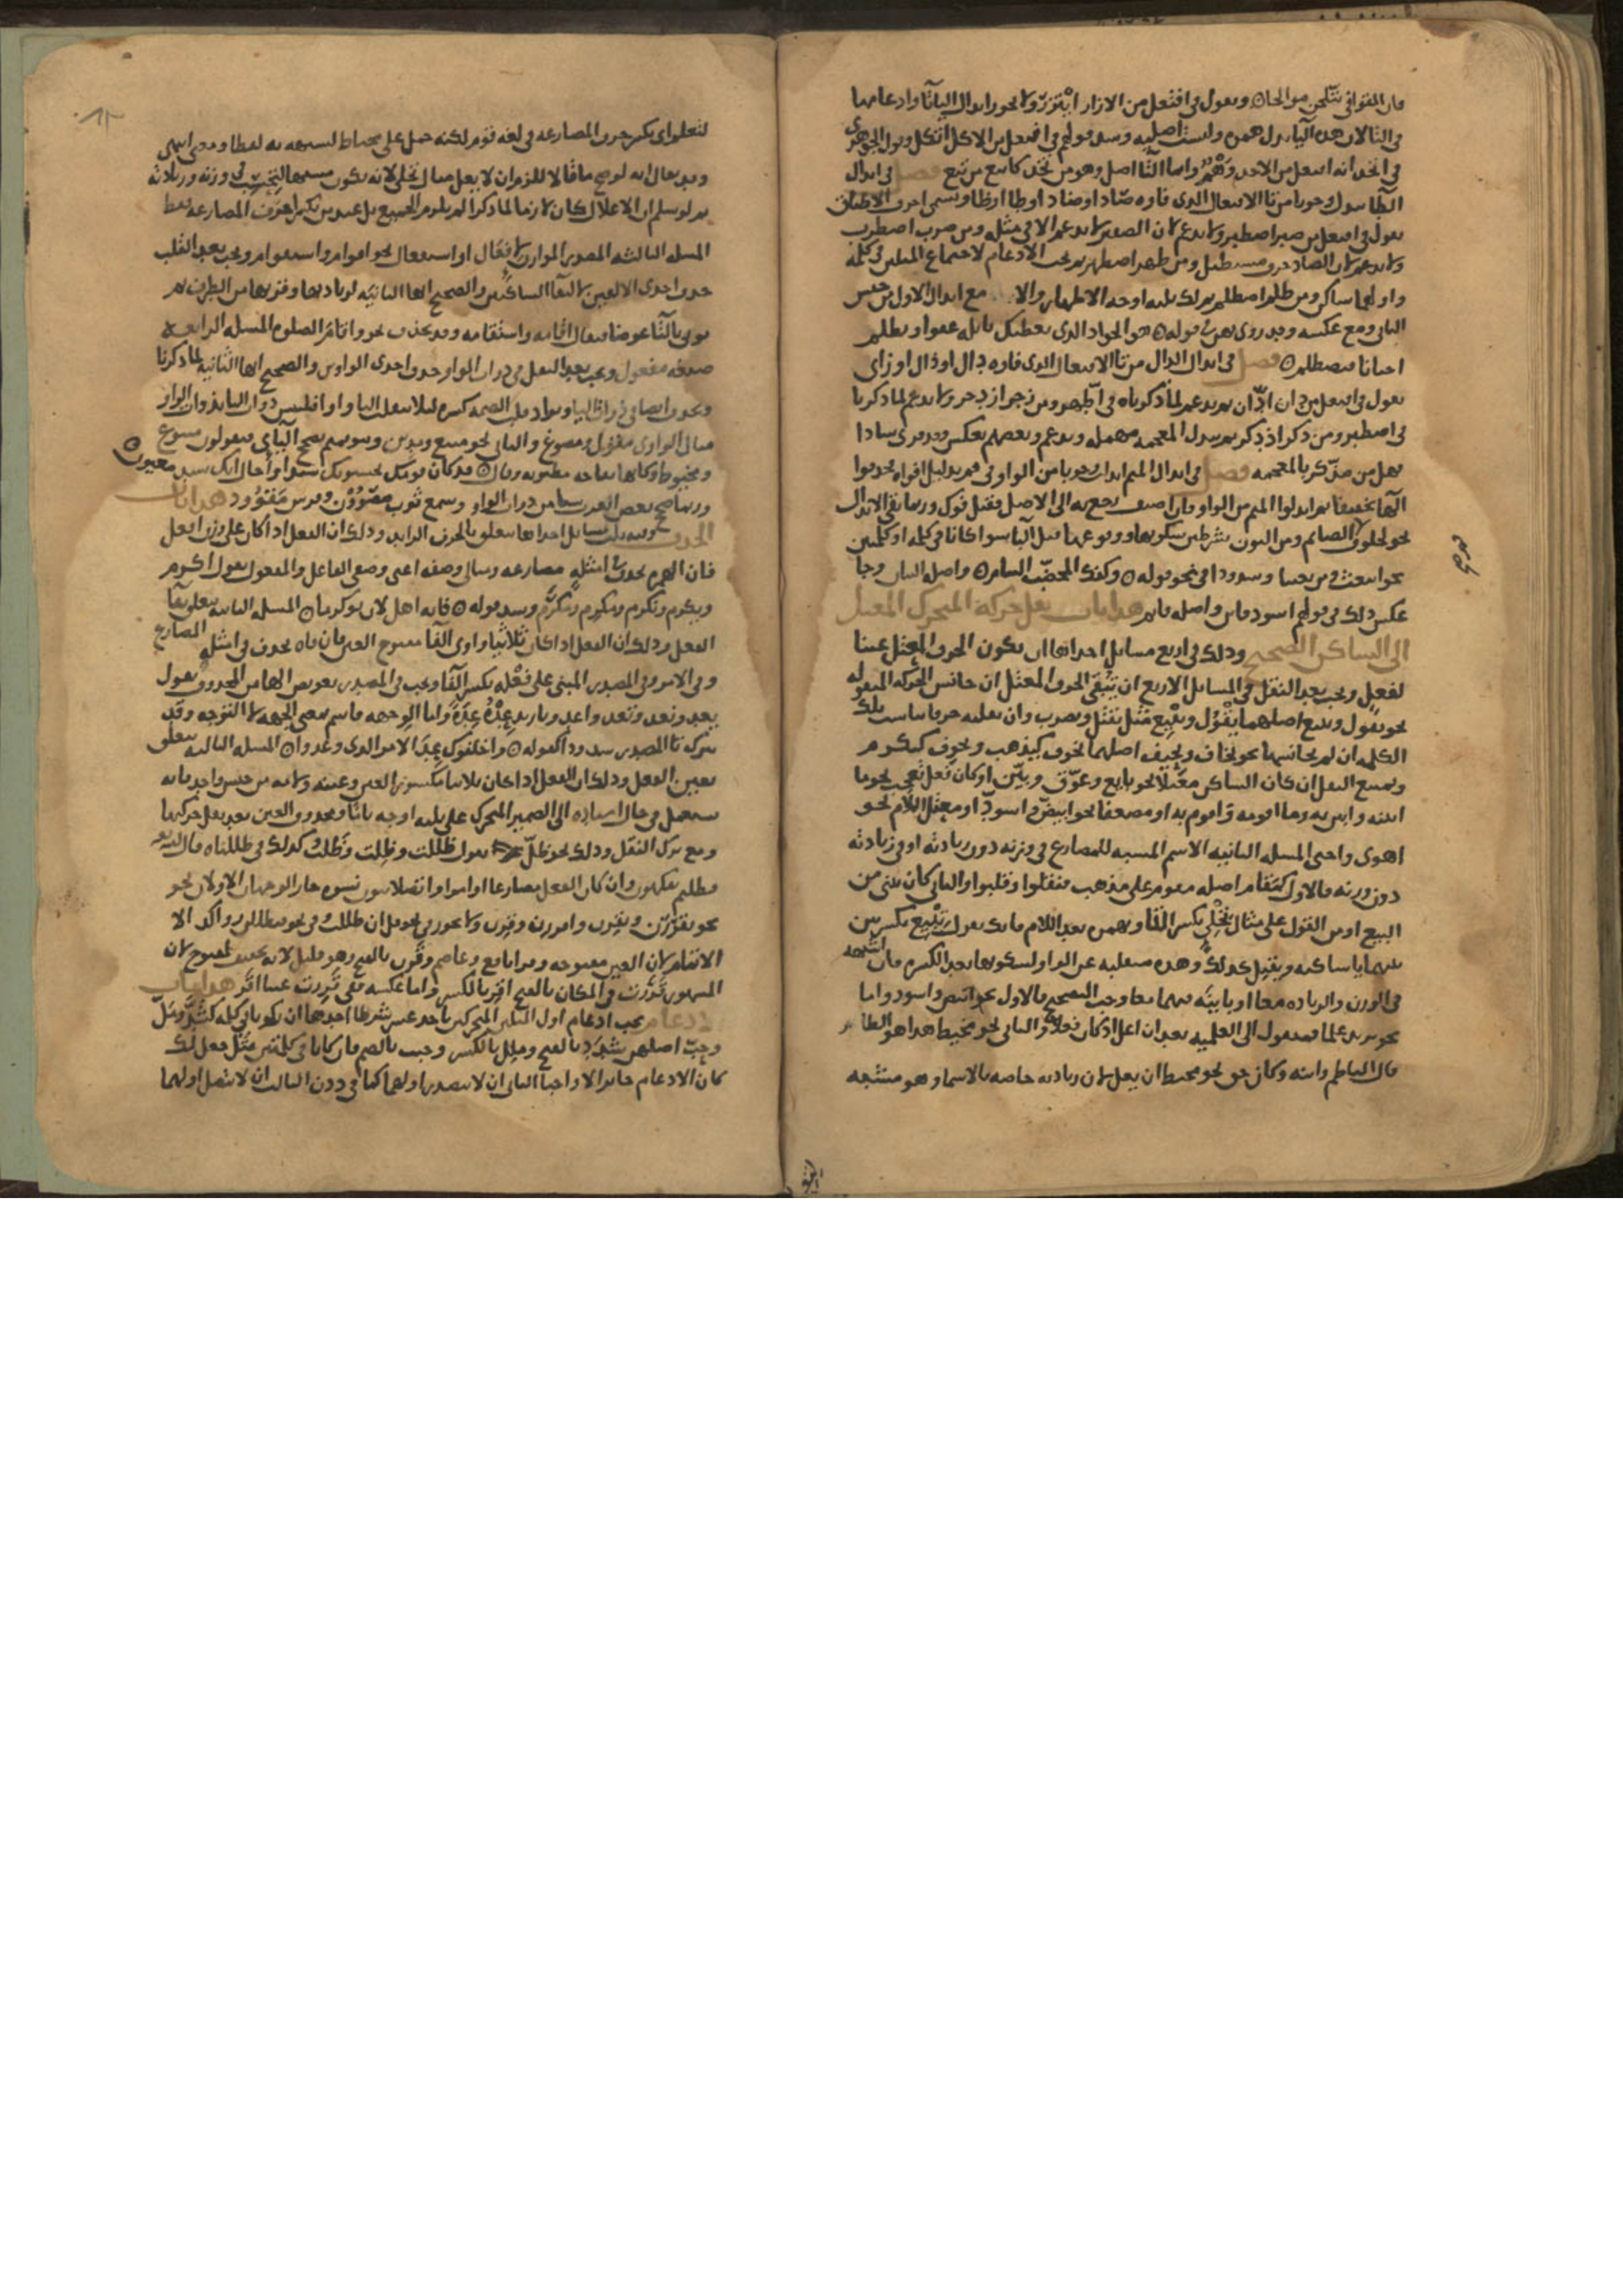 فان القوافي يتلجن موالجا وتقول في افتعل من الازار ايتزر ولا يجوز ابدال اليا تا وادغامها
في التا لان هذه اليا بدل همزة وليست اصلية وشذ قولهم في افتعل من الاكل اتكل وقول الجوهري
في اتخذ انه افتعل من الاخذ وهم وانما التا اصل وهو من تخذ كاتبع من تبع فصل في ابدال
الطا تبدل وجوبا من تا الافتعال الذي فاوه صاد او ضاد او طا او ظا وتسمى احرف الاطباق
تقول في افتعل من صبر اصطبر ولا يدغم لان الصفير لا يدغم الا في مثله ومن ضرب اضطرب
ولا يدغم لان الضاد حرف مستطيل ومن طهر اطهر ثم يجب الادغام لاجتماع المثلين في كلمة
واولهما ساكن ومن ظلم اظطلم ثم لك ثلاثة اوجه الاظهار والا مع ابدال الاول من جنس
الثاني ومع عكسه وقد روي بهن قوله هو الجواد الذي يعطيك نائله عفوا ويظلم
احيانا فيظطلم فصل في ابدال الدال من تا الافتعال الذي فاوه دال او ذال او زاي
تقول في افتعل من دان ادان ثم يدغم لما ذكرناه في اطهر ومن زجر ازدجر ولا يدغم لما ذكرنا
في اصطبر ومن ذكر اذدكر ثم تبدل المعجمة مهملة وتدغم وبعضهم يعكس وقد قري شاذا
فهل من مذكر بالمعجمة فصل في ابدال الميم ابدلت وجوبا من الواو في فم بدليل افواه فحذفوا
الها تخفيفا ثم ابدلوا الميم من الواو فان اضيف رجع به الى الاصل فقيل فوك وربما بقي الابدال
نحو لخلوف فم الصائم ومن النون بشرطين سكونها ووقوعها قبل البا سوا كانا في كلمة او كلمتين
نحو انبعث ومن بعثنا وشذوذا في نحو قوله وكفك المخضب البنام واصله البنان وجا
عكس ذلك في قولهم اسود قاتن واصله قاتم هذا باب نقل حركة المتحرك المعتل
الى الساكن الصحيح وذلك في اربع مسائل احداها ان يكون الحرف المعتل عينا
لفعل ويجب بعد النقل في المسائل الاربع ان يبقى الحرف المعتل ان جانس الحركة المنقولة
نحو يقول ويبيع اصلهما يقول ويبيع مثل يقتل ويضرب وان تقلبه حرفا يناسب تلك
الكلمة ان لم يجانسها نحو يخاف ويخيف اصلهما يخوف كيذهب ويخوف كيكرم
ويمتنع النقل ان كان الساكن معتلا نحو بايع وعوق وبين او كان فعل تعجب نحو ما
ابينه وابين به وما اقومه واقوم به او مضعفا نحو ابيض واسود او معتل اللام نحو
اهوى واحيى المسله الثانية الاسم المشبه للمضارع في وزنه دون زيادته او في زيادته
دون وزنه فالاول كمقام اصله مقوم على مذهب فنقلوا وقلبوا والثاني كان تبني من
البيع او من القول على مثال تحلئ بكسر التا وهمزة بعد اللام فانك تقول تبيع بكسرتين
بعدهما يا ساكنة وتقيل كذلك وهذه منقلبة عن الواو لسكونها بعد الكسرة فان اشبهه
في الوزن والزيادة معا او باينه فيهما معا وجب التصحيح فالاول نحو ابيض واسود واما
نحو يزيد علما فمنقول الى العلمية بعد ان اعل اذ كان فعلا والثاني نحو مخيط هذا هو الظاهر
قال الناظم وابنه وكان حق نحو مخيط ان يعل لان زيادته خاصة بالاسما وهو مشبه
لتعلم اي بكسر حرف المضارعة في لغة قوم لكنه حمل على مخياط لشبهه به لفظا ومعنى انتهى
وقد يقال انه لو صح ما قالا للزم ان لا يعل مثال تحلئ لانه يكون مشبها لتحسب في وزنه وزيادته
ثم لو سلم ان الاعلال كان لازما لما ذكرا لم يلزم الجميع بل عند من يكسر حرف المضارعة فقط
المسله الثالثة المصدر الموازن لافعال او استفعال نحو اقوام واستقوام ويجب بعد القلب
حذف احدى الالفين لالتقا الساكنين والصحيح انها الثانية لزيادتها وقربها من الطرف ثم
يوتى بالتا عوضا فيقال اقامة واستقامة وقد تحذف نحو واقام الصلوة المسله الرابعة
صيغة مفعول ويجب بعد النقل في ذوات الواو حذف احدى الواوين والصحيح انها الثانية لما ذكرنا
ويجب ايضا في ذوات اليا وقلب الضمة كسرة ليلا تنقلب اليا واوا فتلتبس ذوات اليا بذوات الواو
مثال الواوي مقول ومصوغ واليائي نحو مبيع ومدين وبنو تميم تصحح اليائي فيقولون مبيوع
ومخيوط وكانها تفاحة مطيوبة وقال قد كان قومك يحسبونك سيدا واخال انك سيد مغيون
وربما صحح بعض العرب شيا من ذوات الواو وسمع ثوب مصوون وفرس مقوود هذا باب
الحذف وفيه ثلاث مسائل احداها تتعلق بالحرف الزايد وذلك ان الفعل اذا كان على وزن افعل
فان الهمزة تحذف في امثلة مضارعه ومثالي وصفه اعني وصفي الفاعل والمفعول تقول اكرم
ويكرم ونكرم وتكرم ومكرم ومكرم وشذ قوله فانه اهل لان يوكرما المسله الثانية تتعلق بفا
الفعل وذلك ان الفعل اذا كان ثلاثيا واوي الفا مفتوح العين فان فاه تحذف في امثلة المضارع
وفي الامر وفي المصدر المبني على فعلة بكسر الفا ويجب في المصدر تعويض الها من المحذوف تقول
يعد ونعد وتعد واعد ويا زيد عد عدة واما الوجهة فاسم بمعنى الجهة لا التوجه وقد
تترك تا المصدر شذوذا كقوله واخلفوك عد الامر الذي وعدوا المسله الثالثة تتعلق
بعين الفعل وذلك ان الفعل اذا كان ثلاثيا مكسور العين وعينه ولامه من جنس واحد فانه
يستعمل في حال اسناده الى الضمير المتحرك على ثلاثة اوجه تاما ومحذوف العين بعد نقل حركتها
ومع ترك النقل وذلك نحو ظل تقول ظللت وظلت وظلت وكذلك في ظللناه قال الله تعالى
فظلتم تفكهون وان كان الفعل مضارعا او امرا واتصلا بنون نسوة جاز الوجهان الاولان نحو
نحو يقررن ويقرن واقررن وقرن ولا يجوز في نحو قل ان ظللت وفي نحو فيظللن رواكد الا
الاتمام لان العين مفتوحة وقرا نافع وعاصم وقرن بالفتح وهو قليل لانه تخفيف لمفتوح لان
المشهور قررت في المكان بالفتح اقر بالكسر واما عكسه ففي قررت عينا اقر هذا باب
الادغام يجب ادغام اول المثلين المتحركين باحد عشر شرطا احدها ان يكونا في كلمة كشد ومل
وحب اصلهن شدد بالفتح وملل بالكسر وحبب بالضم فان كانا في كلمتين مثل جعل لك
كان الادغام جائزا لا واجبا الثاني ان لا يتصدر اولهما كما في ددن الثالث ان لا يتصل اولهما